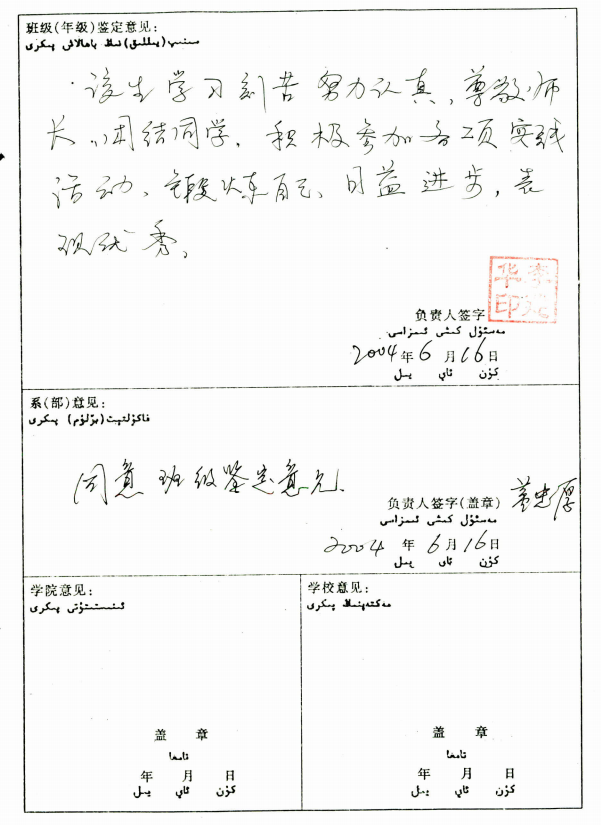 班级(年级)鉴定意见：
سىنىپ(يىللىق)نىڭ باھالاش پىكرى
该生学习刻苦努力认真，尊敬师
长，团结同学，积极参加各项实践
活动，锻炼自己，日益进步，表
现优秀。
华李
印
负责人签字
مەسئۇل كىشى ئىمزاسى
2004年6月16日
كۈن ئاي يىل
系(部)意见：
فاكۇلتېت(بۆلۈم) پىكرى
同意班级鉴定意见
负责人签字(盖章) 董忠厚
مەسئۇل كىشى ئىمزاسى
2004年6月16日
كۈن ئاي يىل
学院意见：
ئىنستىتۇتى پىكرى
盖 章
تامغا
年 月 日
كۈن ئاي يىل
学校意见：
مەكتەپنىڭ پىكرى
盖 章
تامغا
年 月 日
كۈن ئاي يىل